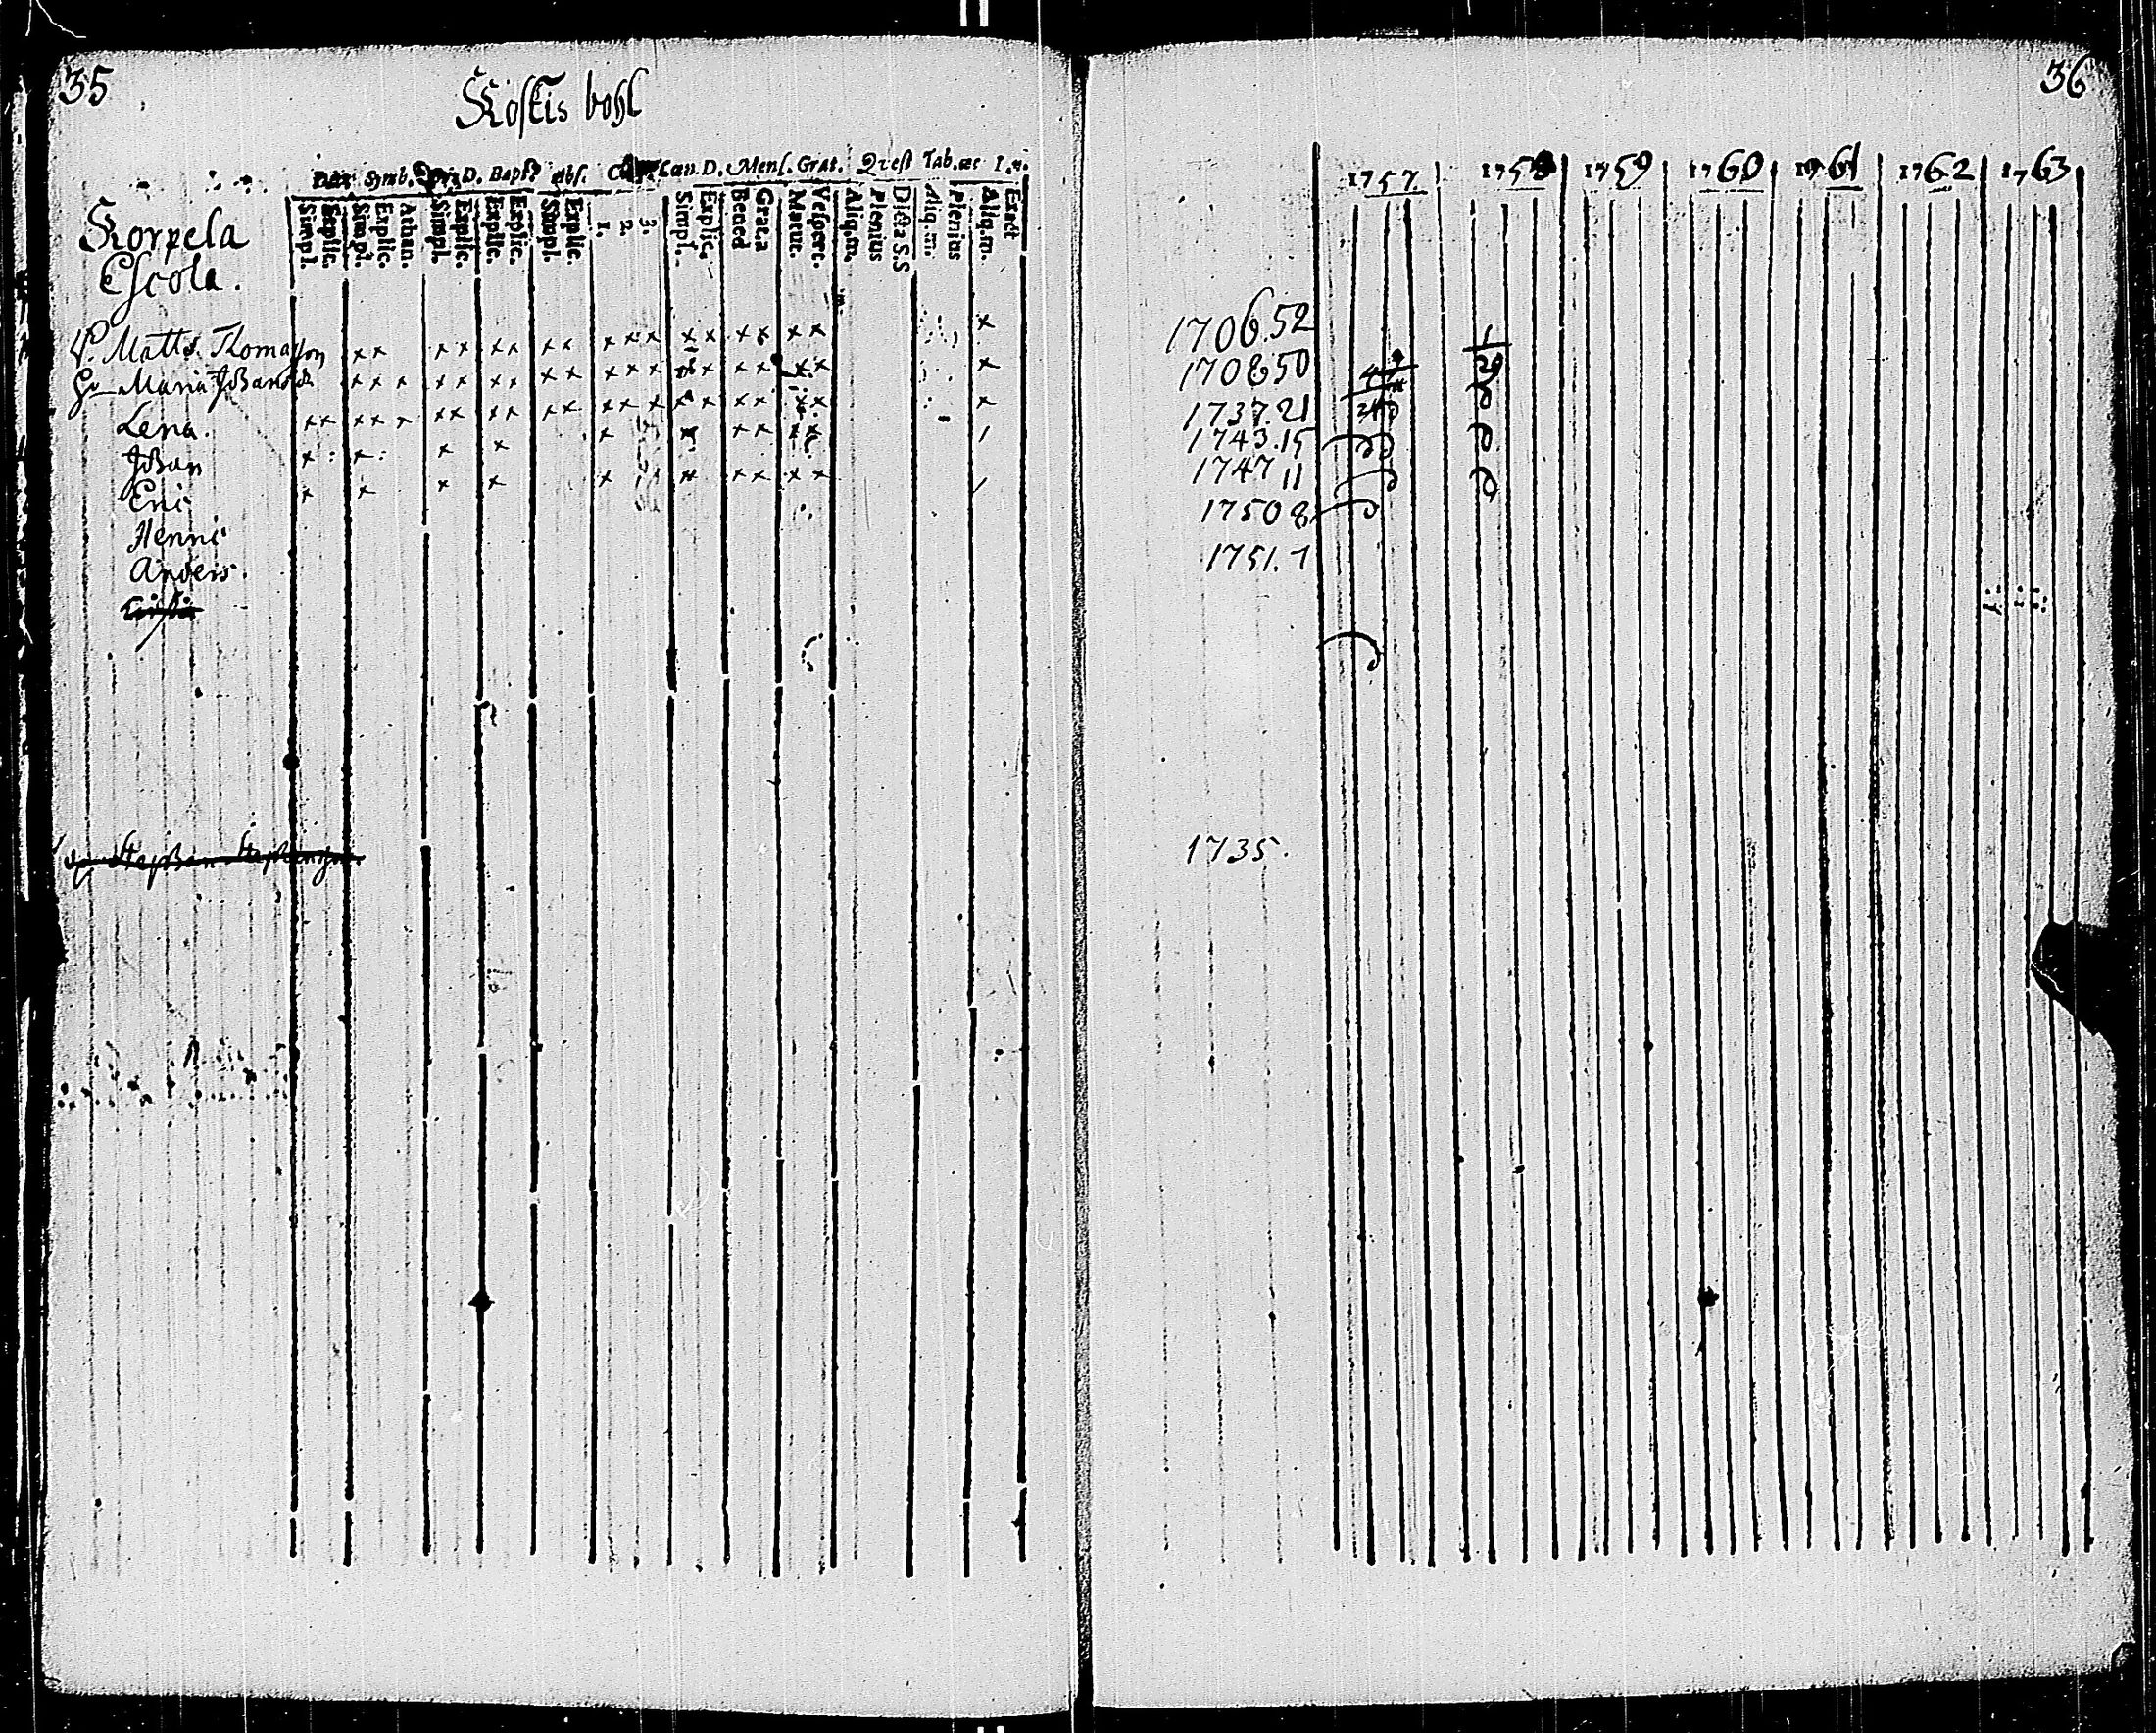 35
Kostis bohl
36
Symb. D. Bapt. Abs. Cœn. D. Mens. Grat. Quest Tab. æt
Simpl. Explic. Simpl. Explic. Athan. Simpl. Explic. Explic. Explic. Simpl. Explic. 1. 2. 3. Simpl. Explic. Bened Grat.a Matut. Vespert. Aliq.m. Plenius Dicta S.S Aliq.m. Plenius Aliq.m. Exact
1757 1758 1759 1760 1761 1762 1763
Korpela
Escola.
Matts. Thomasson x x x x x x x x x x x x x x x x x x 1706.52
Maria Johansdr x x x x x x x x x x x x x x x x x x 1708 50
Lena. x x x x x x x x x x x x x x x x x x x x 1737.21
Johan x x x x x x x x x x 1743.15
Eric x x x x x x x x x x 1747 11
Henric 1750 8
Anders. 1751. 7
Stephan Stephansson 1735.